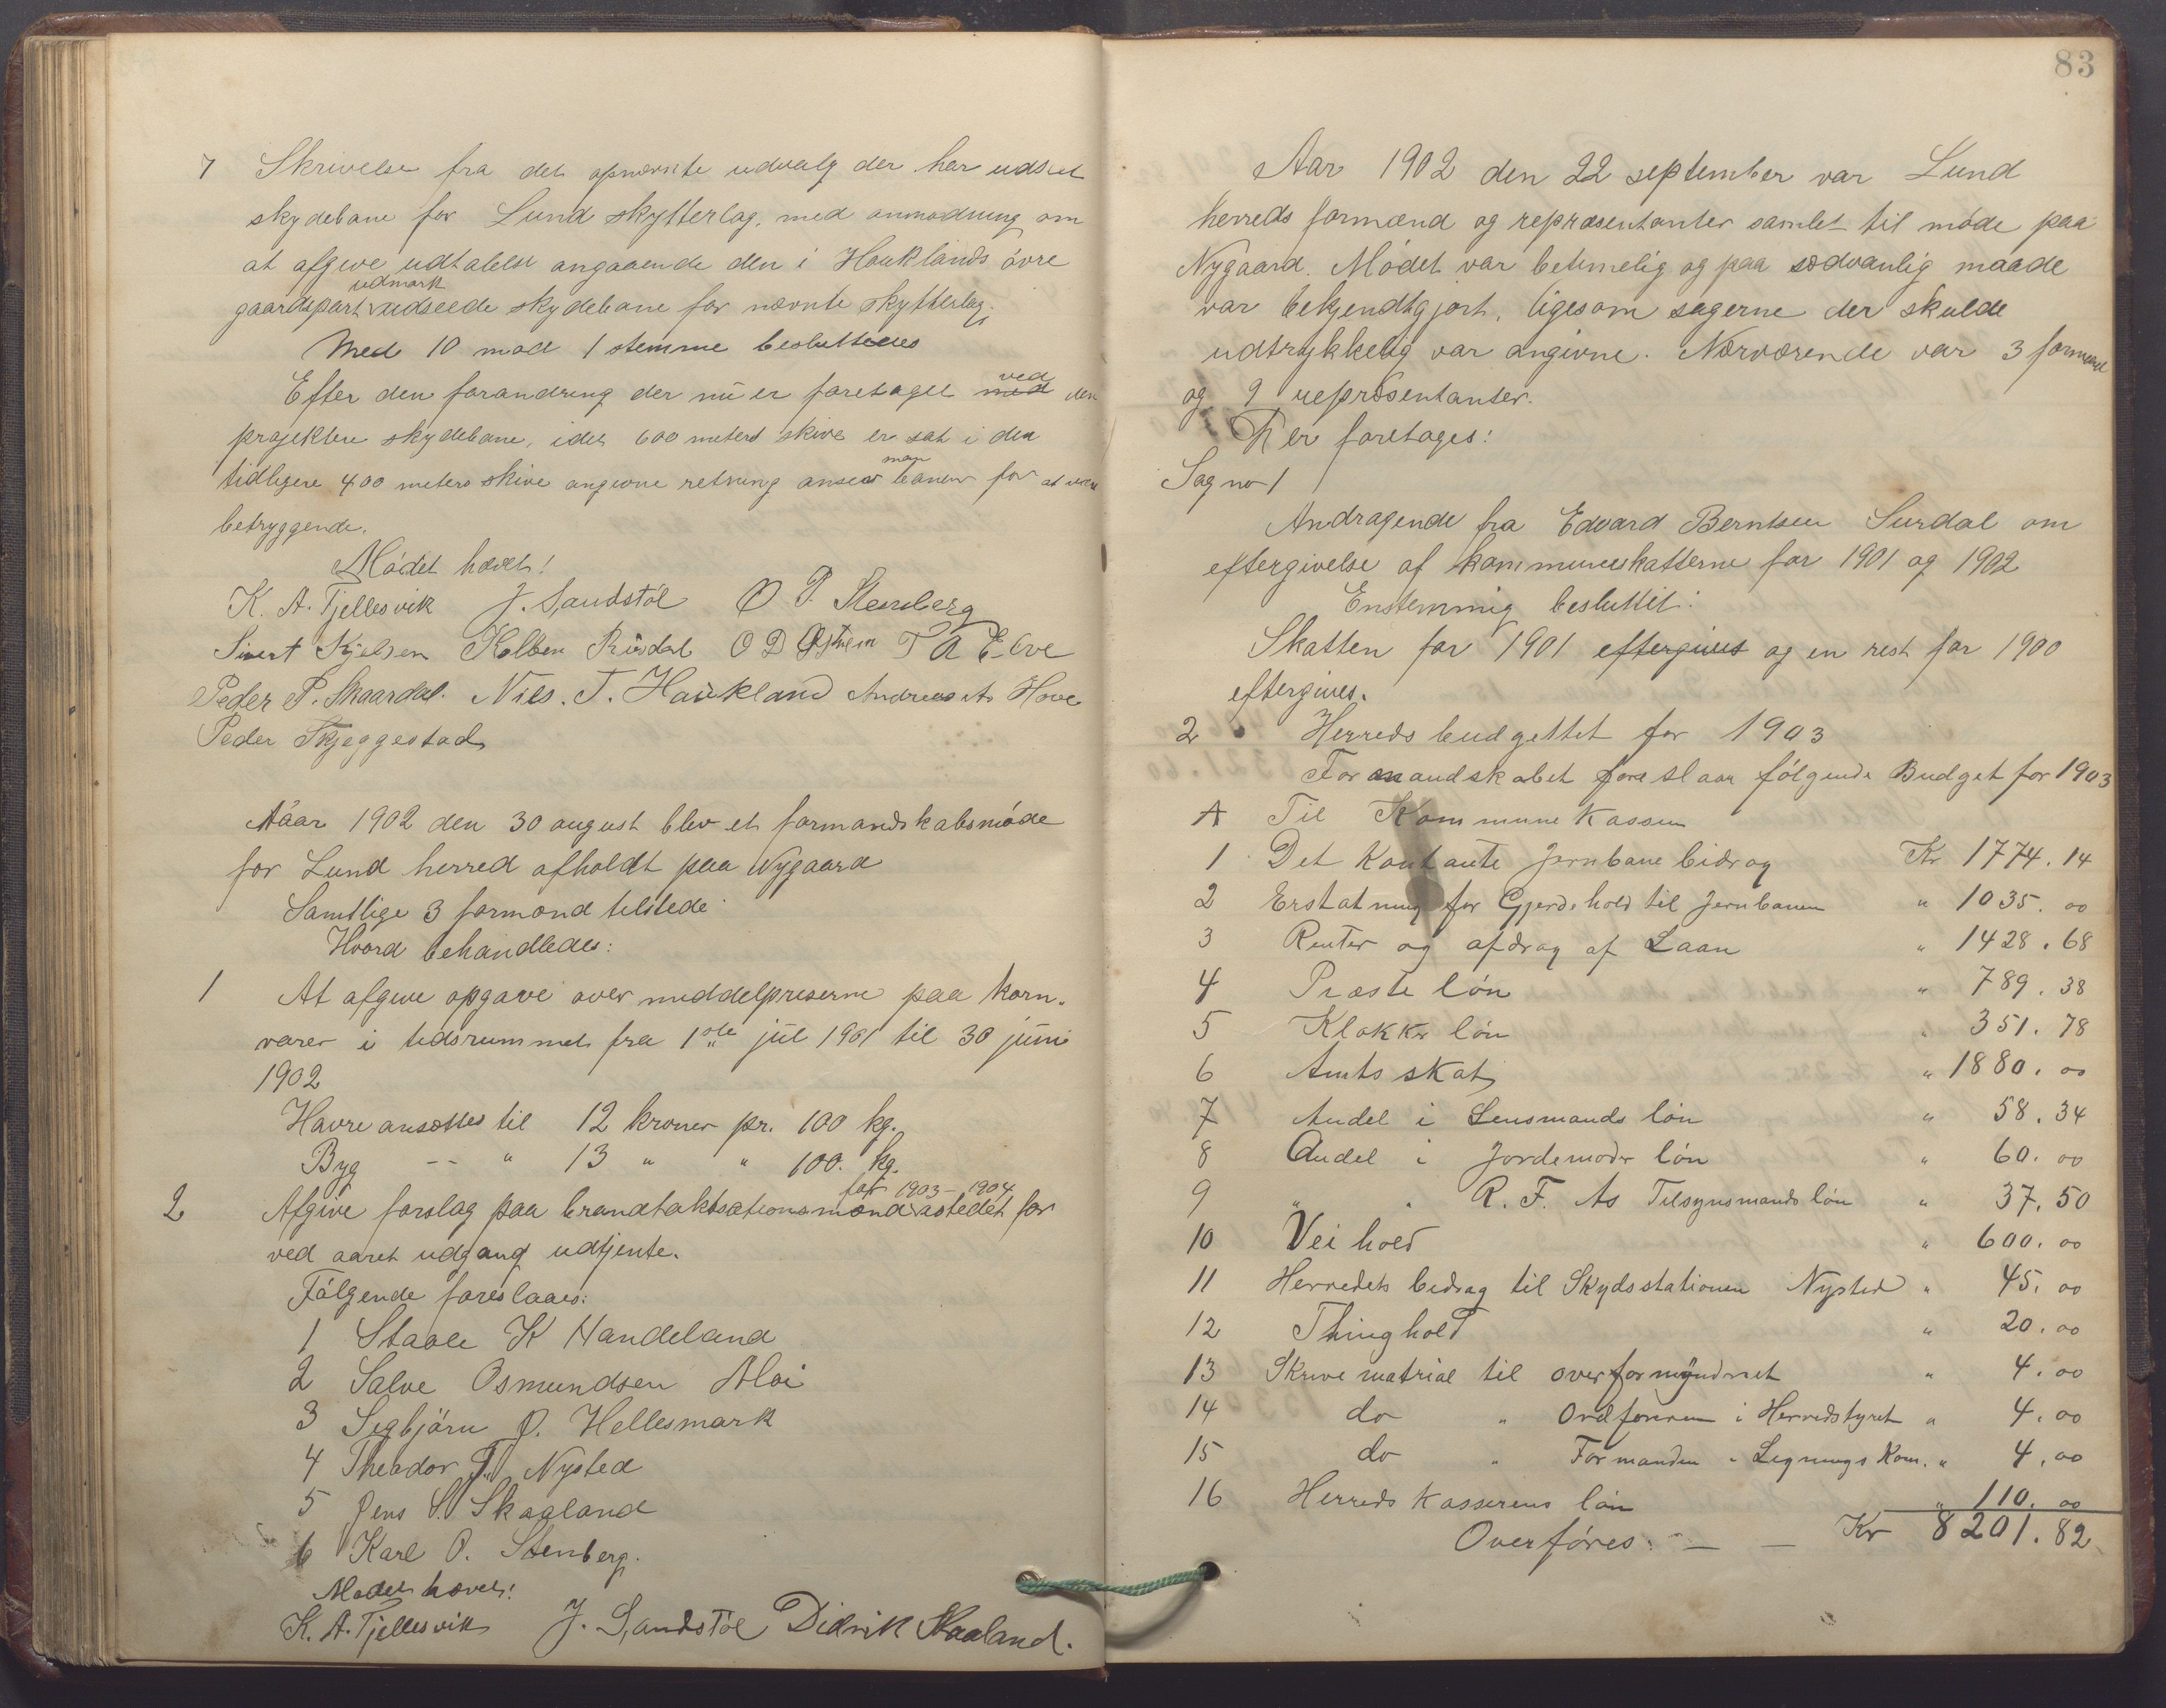 7 Skrivelse fra det opnævnte udvalg der har udset
skydebane for Lund skytterlag, med anmodning om
at afgive udtalelse angaaende den i Hauklands övre
udmark
gaardspart udseede skydebane for nævnte skytterlag.
Med 10 mod 1 stemme besluttedes
Efter den forandring der nu er foretaget med ved den
projekttere skydebane, idet 600 meters skive er sat i den
tidligere 400 meters skive angivne retning anser man banen for at være
betryggende.
Mödet hævet!
K. A. Tjellesvik J. Sandstöl O P. Stenberg
Sivert Kjelsen Kolben Rusdal O D Østrem T A Eeve
Peder P. Skaardal. Nils. T. Haukland Andreas A. Hove
Peder Skjeggestad
Aaar 1902 den 30 august blev et formandskabsmöde
for Lund herred afholdt paa Nygaard
Samtlige 3 formænd tilstede
Hvord behandledes:
1 At afgive opgave over middelpriserne paa korn-
varer i tidsrummet fra 1ste juli 1901 til 30 juni
1902
Havre ansættes til 12 kroner pr. 100 kg.
Byg -- " 13 " " 100. kg.
for 1903 - 1904
2 Afgive forslag paa brandtakstationsmænd istedet for
ved aaret udgang udtjente.
Fölgende foreslaaes:
1 Staale K Handeland
2 Salve Osmundsen Moi
3 Segbjörn O. Hellesmark
4 Theodor T. Nysted
5 Jens S. Skaaland
6 Karl O. Stenberg.
Mödet hævet!
K. A. Tjellesvik J. Sandstöl Didrik Skaaland.
83
Aar 1902 den 22 september var Lund
herreds formænd og repræsentanter samlet til möde paa
Nygaard. Mödet var betimelig og paa sædvanlig maade
var bekjendtgjort, ligesom sagerne der skulde
udtrykkelig var angivne. Nærværende var 3 formænd
og 9 repræsentanter.
Her foretages:
Sag no 1
Andragende fra Edvard Berntsen Surdal om
eftergivelse af kommuneskatterne for 1901 og 1902
Enstemmig besluttet:
Skatten for 1901 eftergives og en rest for 1900
eftergives.
2 Herreds budgettet for 1903
Formandskabet foreslaar fölgende Budget for 1903
A Til Kommune Kassen
1 Det Kontante Jernbane bidrag Kr 1774.14
2 Erstatning for Gjerdehold til Jernbanen " 1035.00
3 Renter og afdrag af Laan " 1428.68
4 Præste lön " 789.38
5 Klokker lön " 351.78
6 Amts skat " 1880.00
7 Andel i Lensmands lön " 58.34
8 Andel i Jordemoder lön " 60.00
9 " " R. F. As Tilsynsmands lön " 37.50
10 Vei hold " 600.00
11 Herredets bidrag til Skydsstationen Nysted " 45.00
12 Thinghold " 20.00
13 Skrive matrial til overformynderiet " 4.00
14 do " Ordföreren i Herredstyret " 4.00
15 do " Formanden " Legnings Kom. " 4.00
16 Herreds Kasserens lön " 110.00
Overföres: — — Kr 8201.82